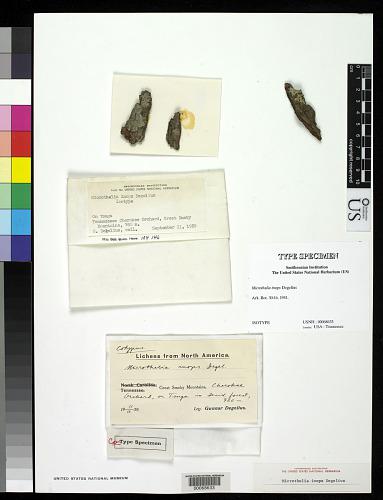 SMITHSONIAN INSTITUTION
Microthelia inops Degelius
Isotype
On Tsuga
Tennessee: Cherokee Orchard, Great Smoky
Mountains, 780 m.
G. Degelius, coll. September 11, 1939
US
TYPE SPECIMEN
Smithsonian Institution
The United States National Herbarium (US)
Microthelia inops Degelius
Ark. Bot. 30A
1941.
ISOTYPE
USNH : 00068633
USA - Tennessee
Cotypus
Lichens from North America.
Microthelia inops Degel.
North Carolina,
Tennessee. Great Smoky Mountains. Cherokee
Orchard, on Tsuga in forest,
Leg. Gunnar Degelius.
Co-Type Specimen
UNITED STATES NATIONAL MUSEUM
00068633
Microthelia inops Degelius